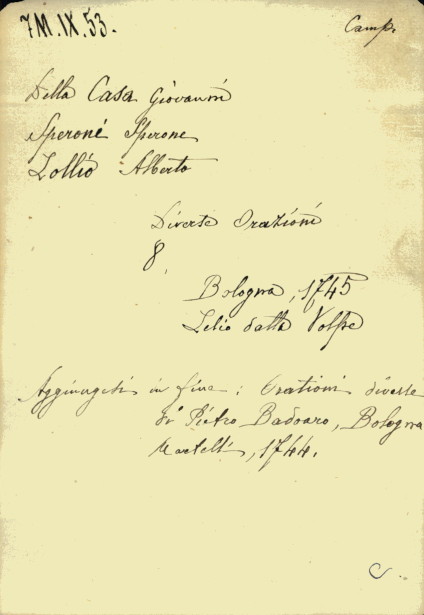 7M.IX.53.
Camp.
Della Casa Giovanni
Speroni Sperone
Lollio Alberto
Diverse Orazioni
8
Bologna, 1745
Lelio dalla Volpe
Aggiungesi in fine: Orationi diverse
di Pietro Badoaro, Bologna
Martelli, 1744.
C